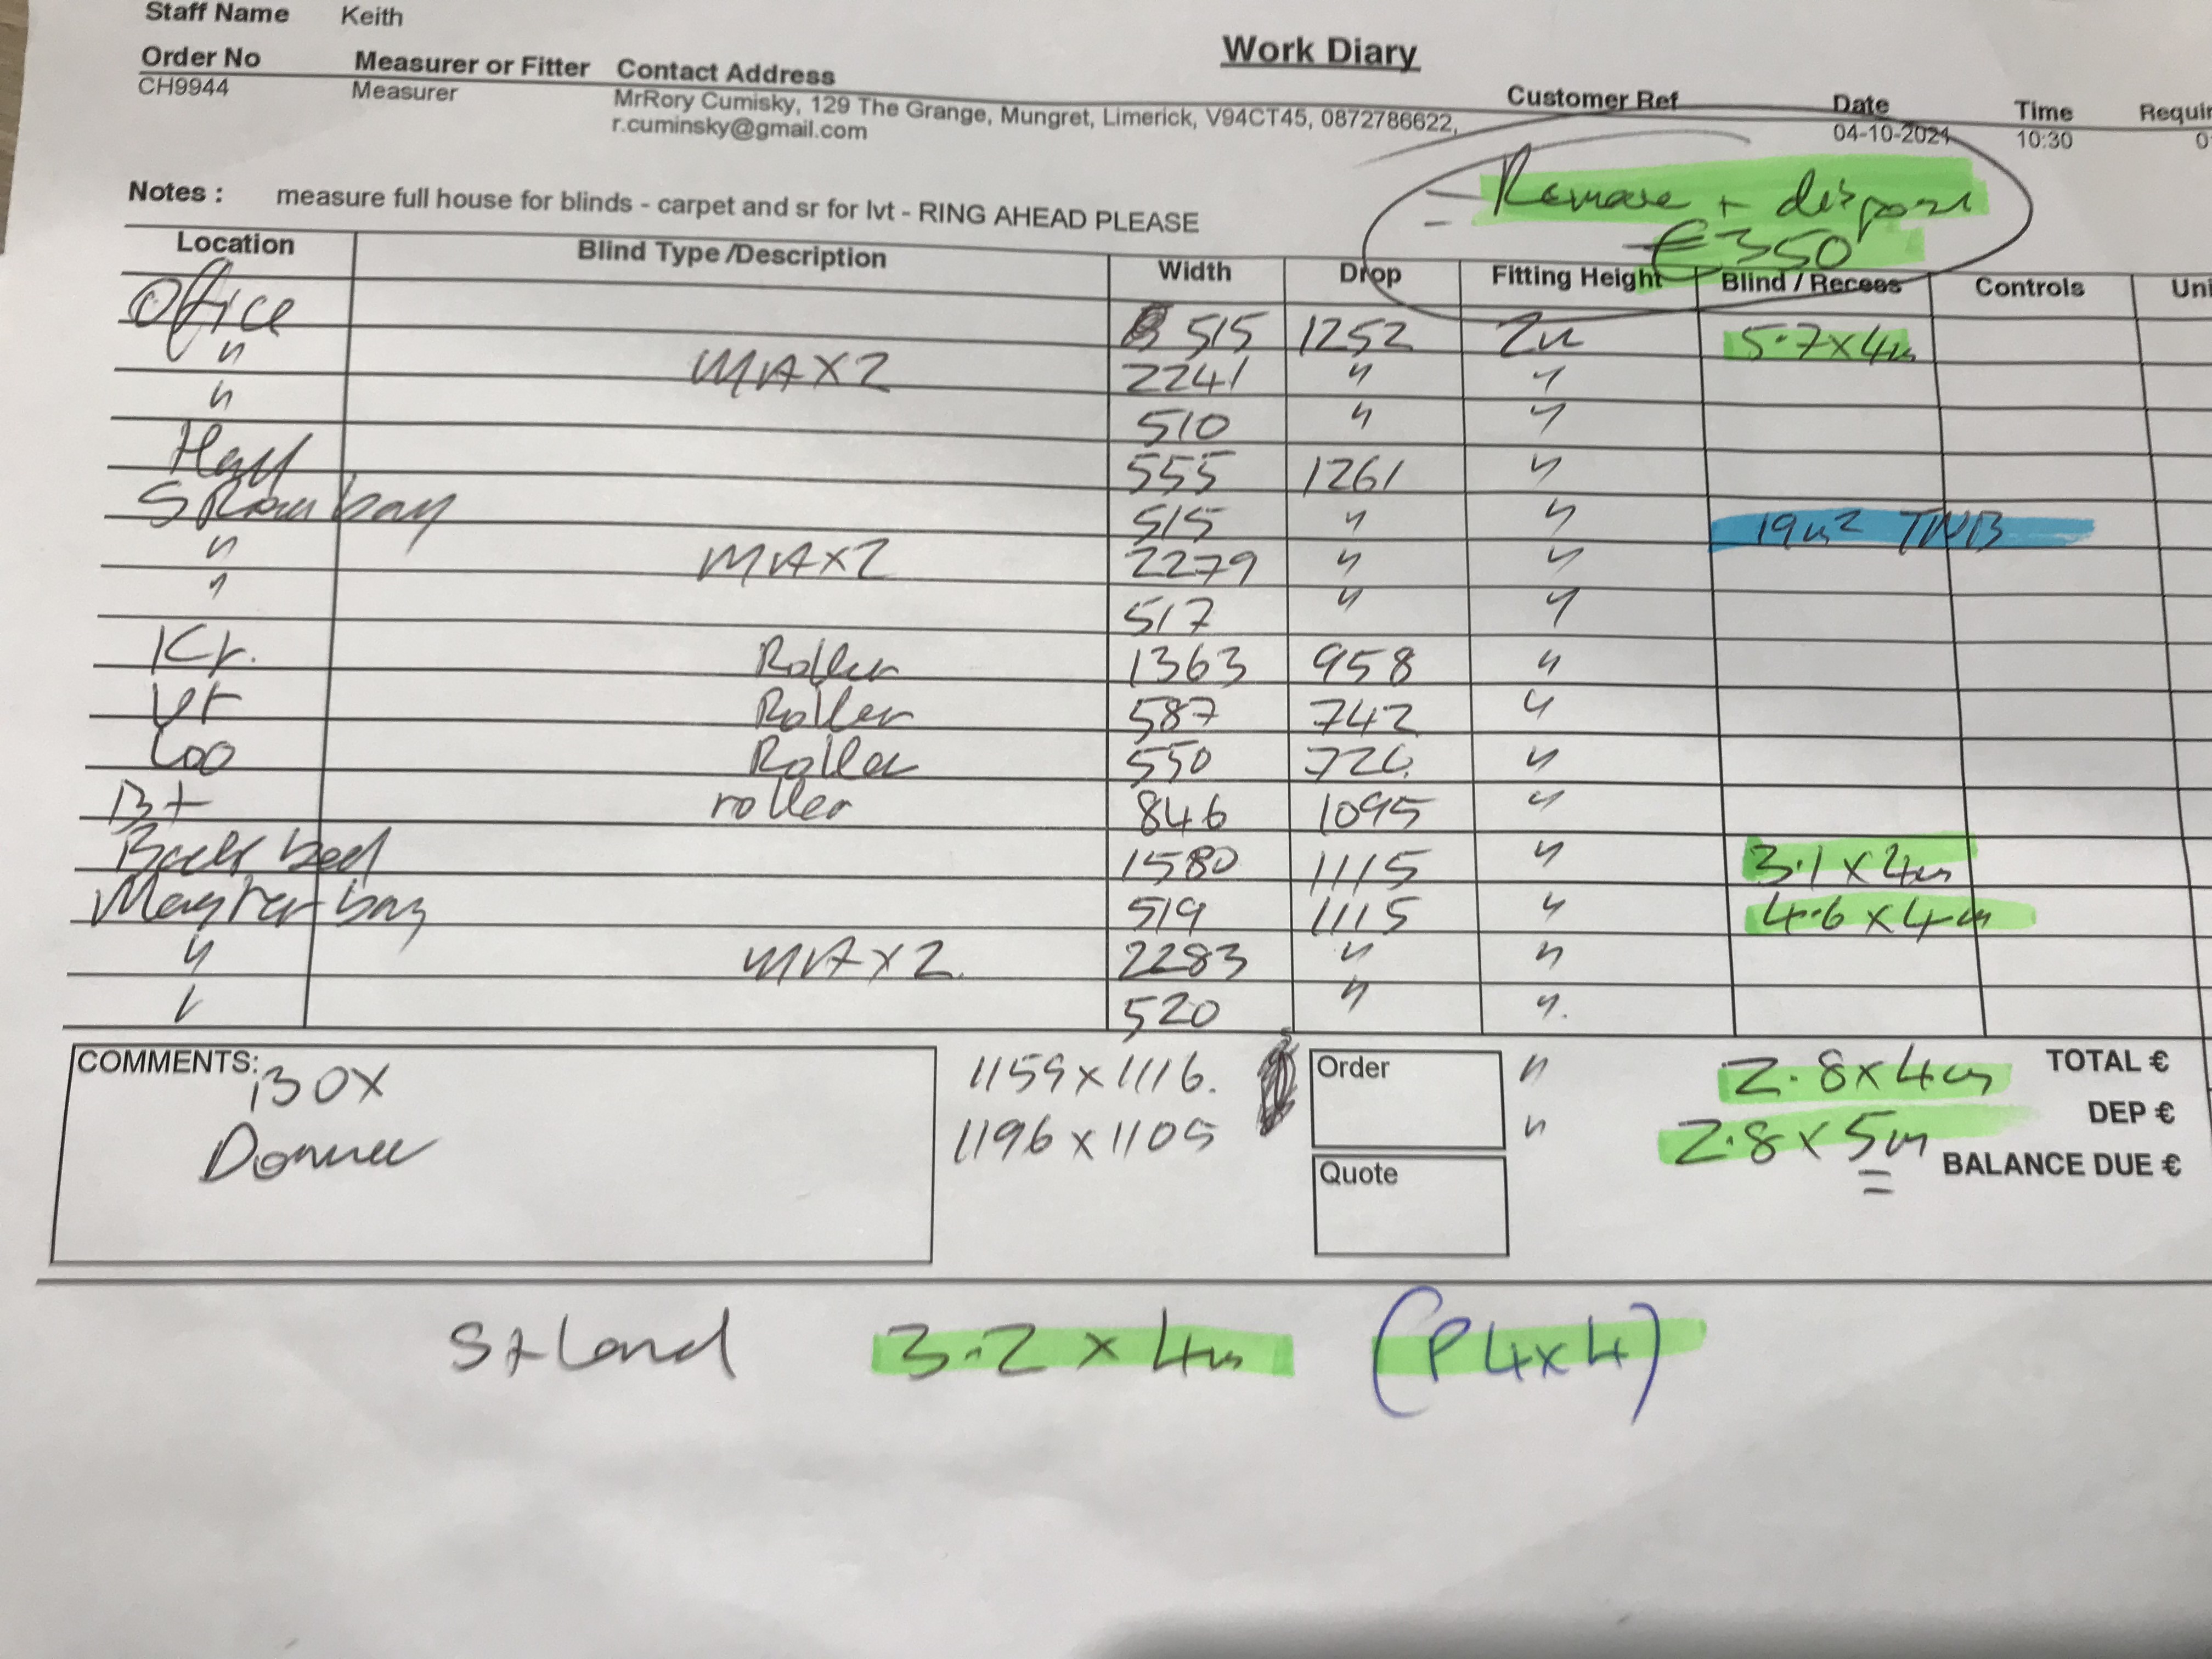 Staff Name Keith
Work Diary
Order No Measurer or Fitter Contact Address Customer Ref Date Time
CH9944 Measurer MrRory Cumisky, 129 The Grange, Mungret, Limerick, V94CT45, 0872786622, 04-10-2024 10:30
r.cuminsky@gmail.com
Remove + dispose
€350
Notes : measure full house for blinds - carpet and sr for lvt - RING AHEAD PLEASE
Location Blind Type /Description Width Drop Fitting Height Blind / Recess Controls
Office 515 1252 2m 5.7x4m
" MAX2 2241 " "
" 510 " "
Hall 555 1261 "
S Room bay 515 " " 19m2 TNB
" MAX2 2279 " "
" 517 " "
Kt. Roller 1363 958 "
Ut Roller 587 742 "
Loo Roller 550 726 "
Bt roller 846 1095 "
Back bed 1580 1115 " 3.1x4m
Master bay 519 1115 " 4.6x4m
" MAX2. 2283 " "
" 520 " ".
COMMENTS: BOX 1159x1116. Order " 2.8x4m TOTAL €
Donnee 1196x1105 " 2.8x5m DEP €
Quote BALANCE DUE €
St land 3.2x4m (P4x4)